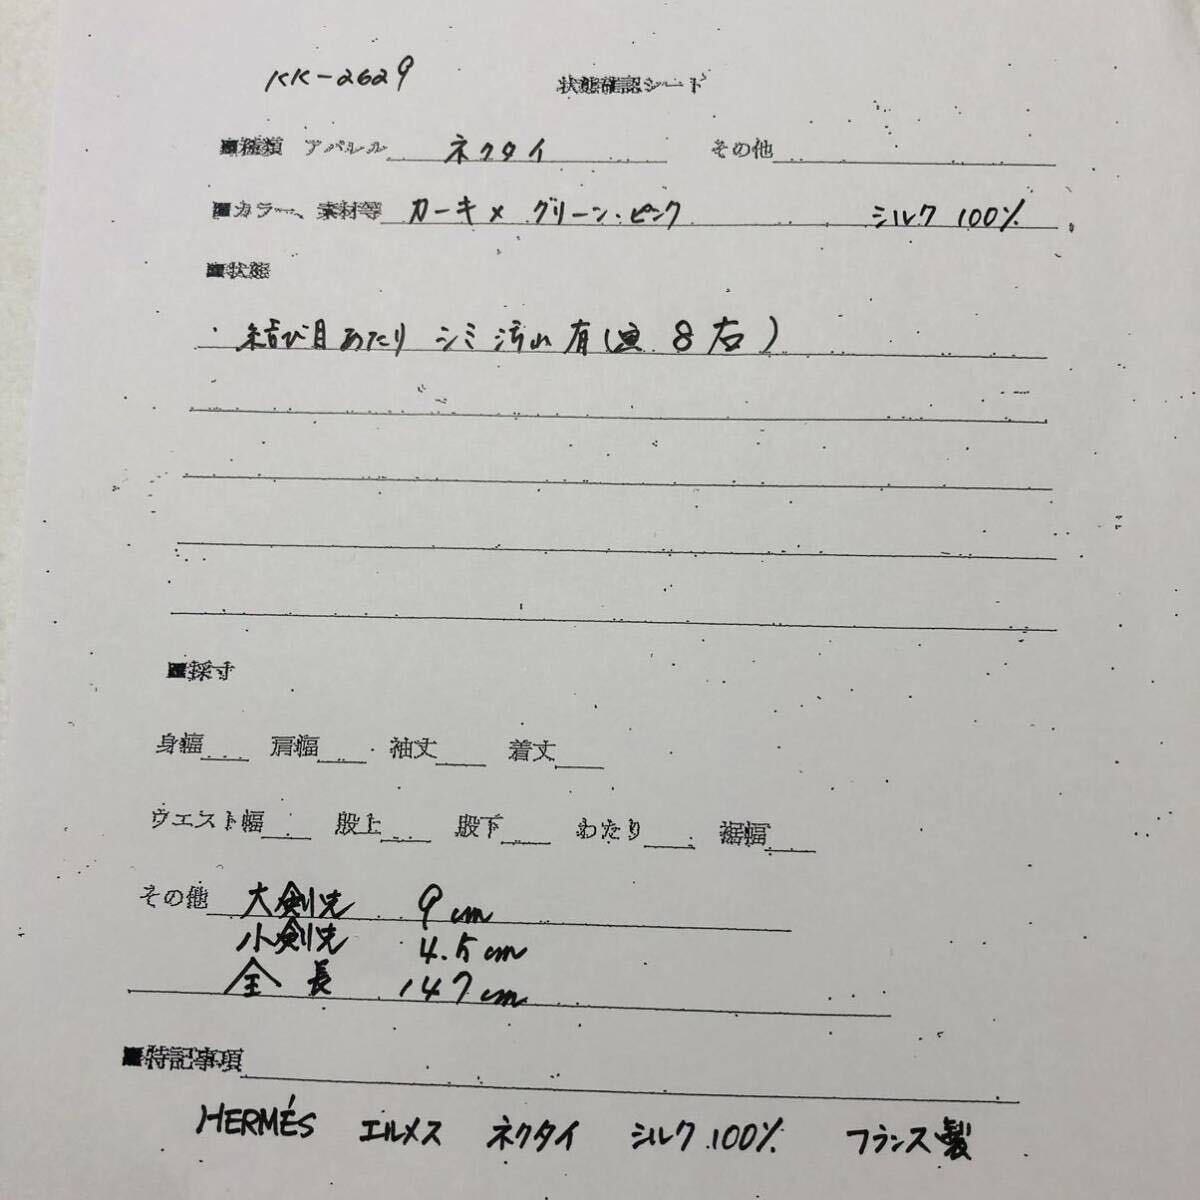 KK-2629 状態確認シート
■種類 アパレル ネクタイ その他
■カラー、素材等 カーキ×グリーン・ピンク シルク 100%
■状態
・結び目あたり シミ汚れ有(画 8右)
■採寸
身幅 肩幅 袖丈 着丈
ウエスト幅 股上 股下 わたり 裾幅
その他 大剣先 9cm
小剣先 4.5cm
全長 147cm
■特記事項
HERMÉS エルメス ネクタイ シルク 100% フランス製